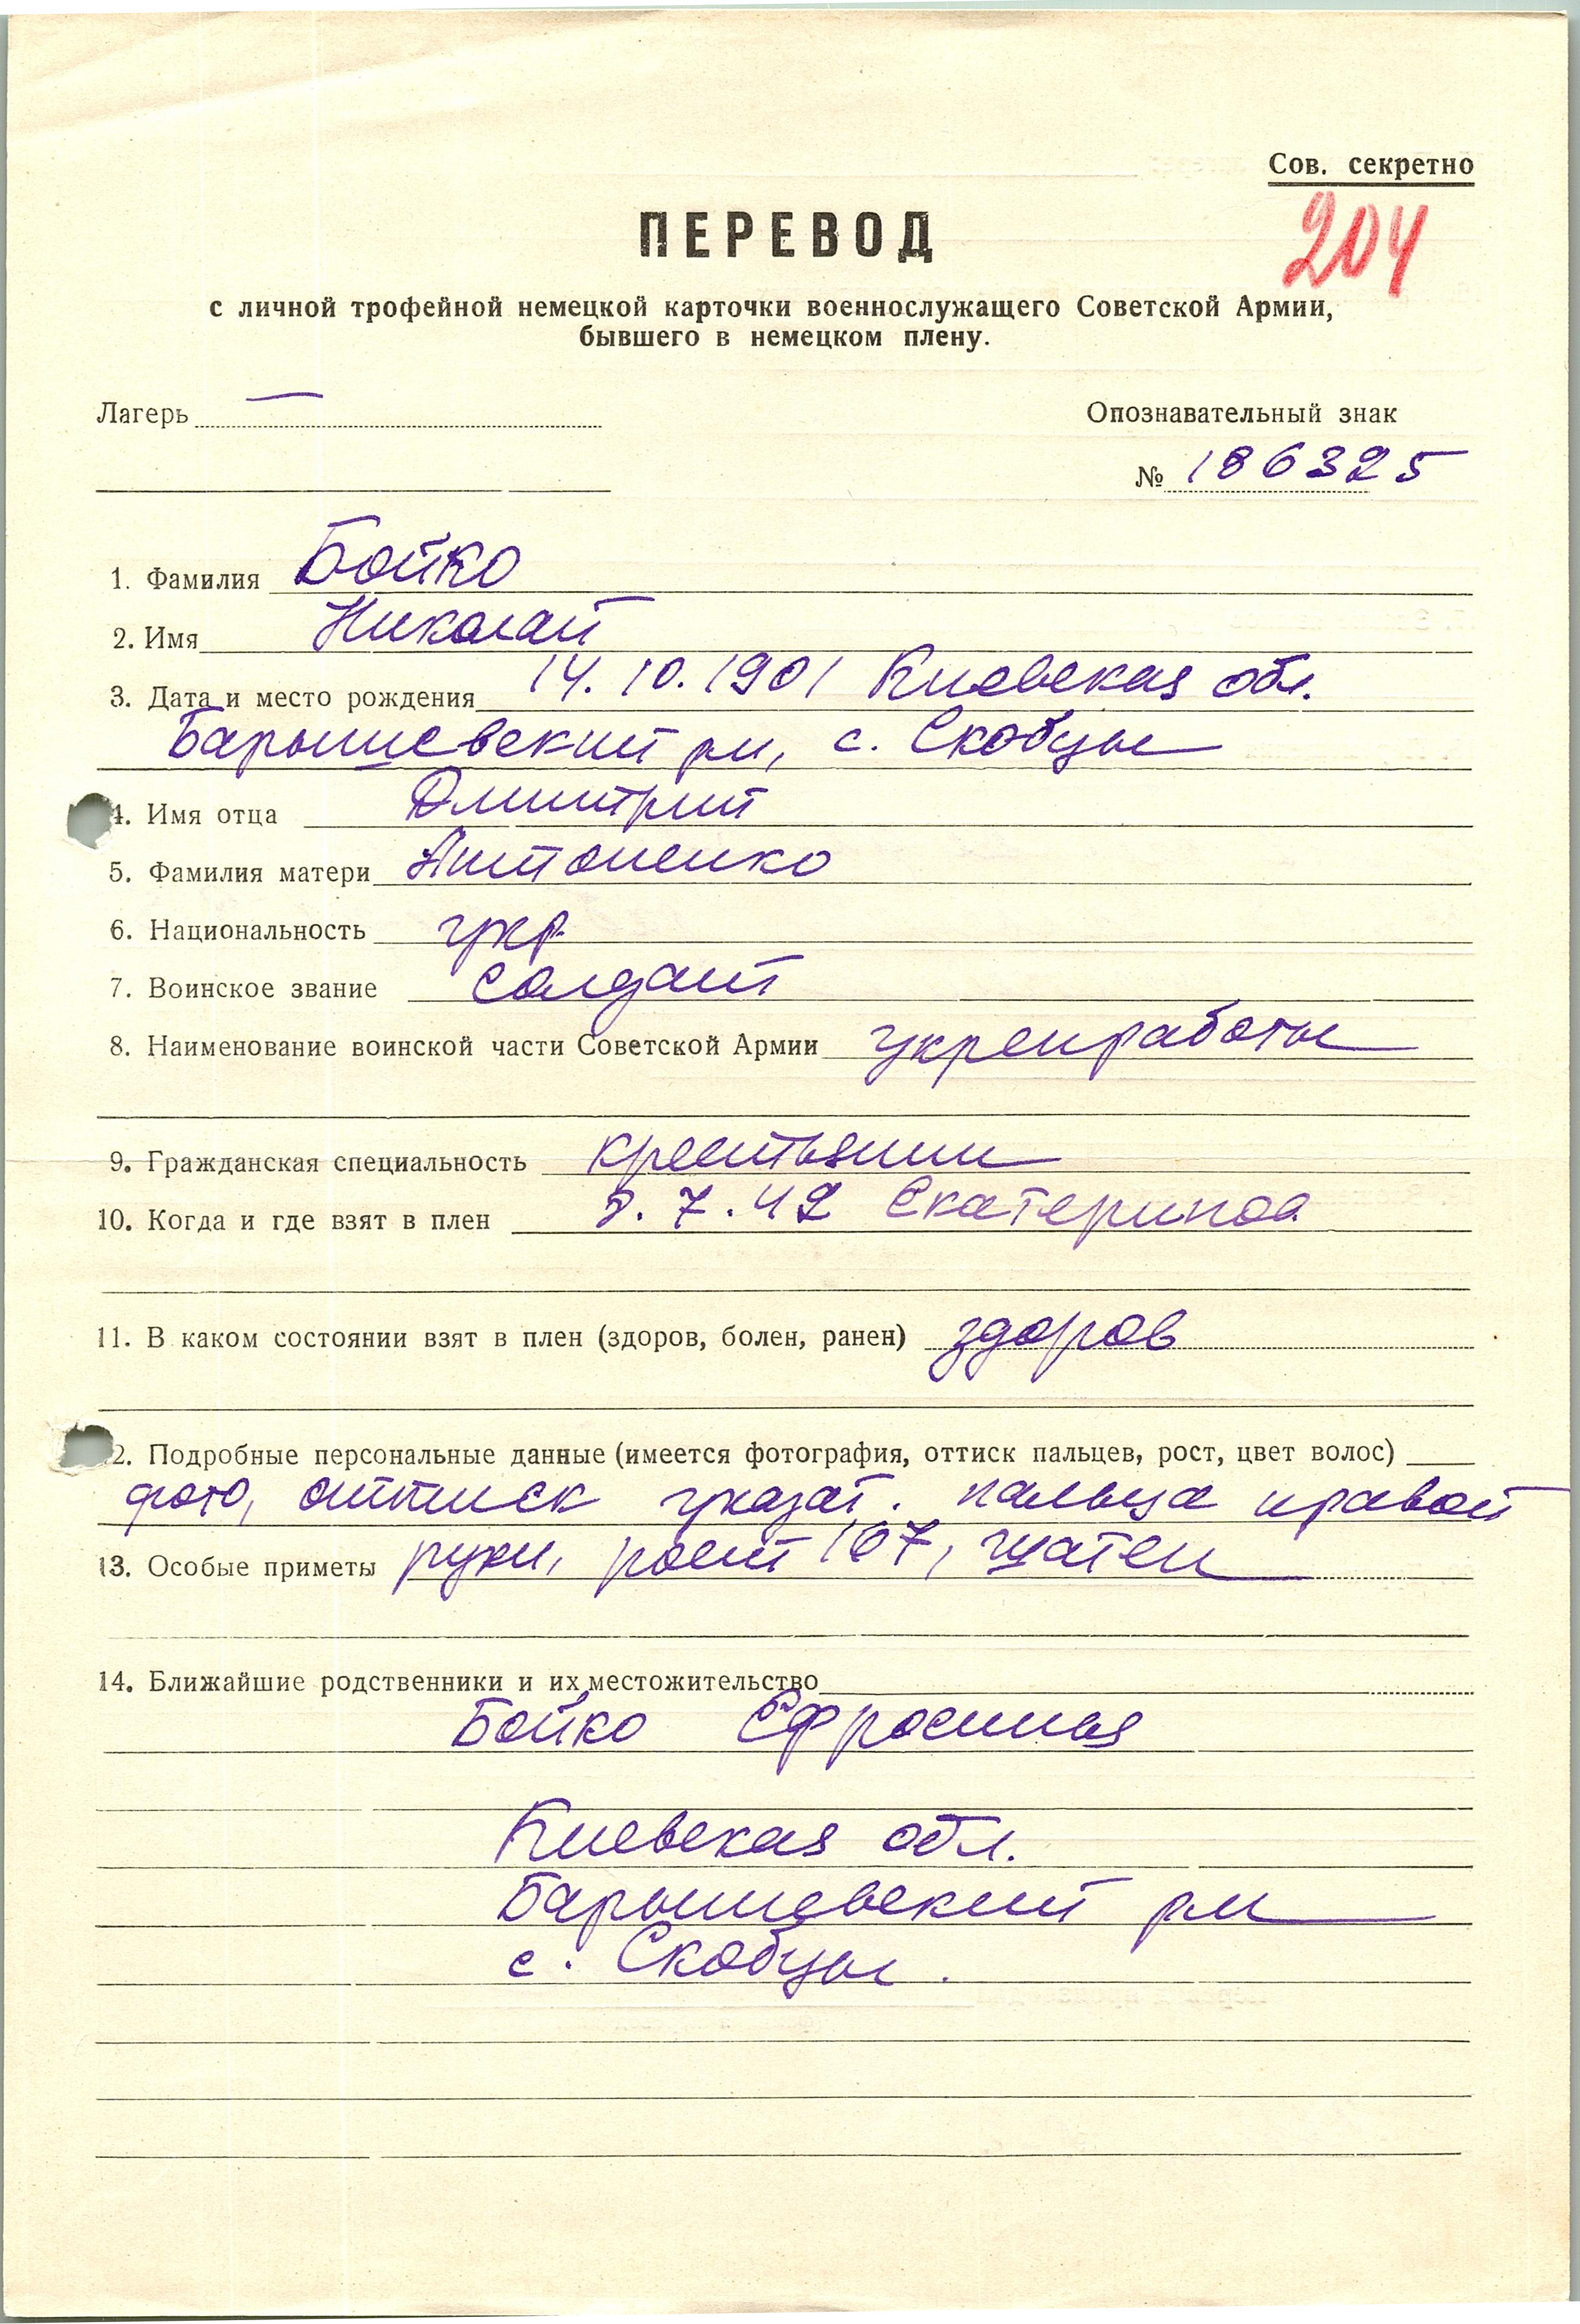 Сов. секретно
204
ПЕРЕВОД
с личной трофейной немецкой карточки военнослужащего Советской Армии,
бывшего в немецком плену.
Лагерь — Опознавательный знак
№ 186325
1. Фамилия Бойко
2. Имя Николай
3. Дата и место рождения 14.10.1901 Киевская обл.
Барышевский рн, с. Скобцы
4. Имя отца Дмитрий
5. Фамилия матери Антоненко
6. Национальность укр.
7. Воинское звание солдат
8. Наименование воинской части Советской Армии укрепработы
9. Гражданская специальность крестьянин
10. Когда и где взят в плен 7.42
11. В каком состоянии взят в плен (здоров, болен, ранен) здоров
2. Подробные персональные данные (имеется фотография, оттиск пальцев, рост, цвет волос)
фото, оттиск указат. пальца правой
13. Особые приметы руки, рост 167, шатен
14. Ближайшие родственники и их местожительство
Бойко Ефросинья
Киевская обл.
Барышевский рн
с. Скобцы.